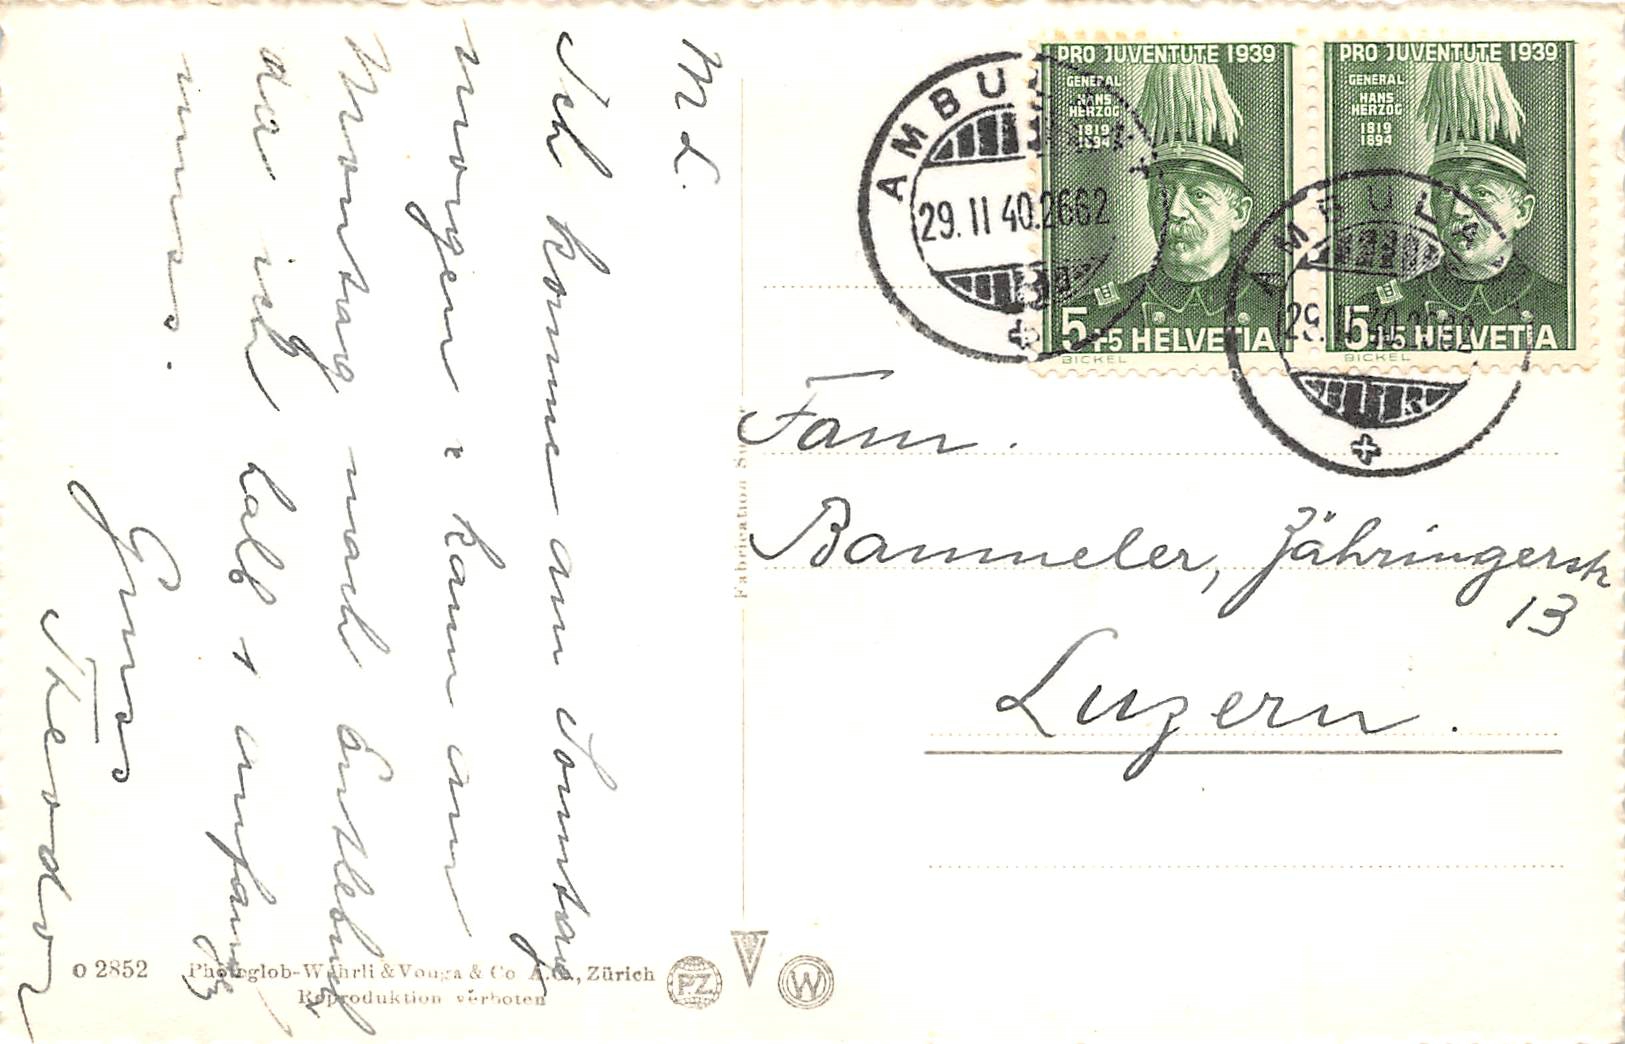 M L.
Ich komme am Sonntag
morgen & kann am
Montag nach Entlebuch
da ich halb 1 anfangen
muss.
Gruss
Theodor
PRO JUVENTUTE 1939
GENERAL
HANS
HERZOG
1819
1894
5+5 HELVETIA
BICKEL
PRO JUVENTUTE 1939
GENERAL
HANS
HERZOG
1819
1894
5+5 HELVETIA
BICKEL
AMBULANT
29. II 40.2662
AMBULANT
29. II 40.2662
Fam.
Bammeler, Zähringerstr
13
Luzern.
Fabrication Suisse
O 2852
Photoglob-Wehrli & Vouga & Co A.G., Zürich
Reproduktion verboten
P.Z.
V
W